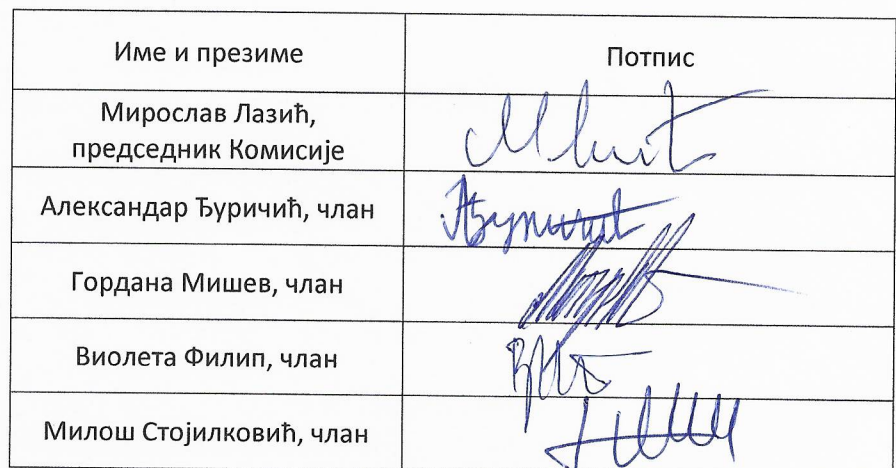 Име и презиме
Потпис
Мирослав Лазић,
председник Комисије
Александар Ђуричић, члан
Гордана Мишев, члан
Виолета Филип, члан
Милош Стојилковић, члан